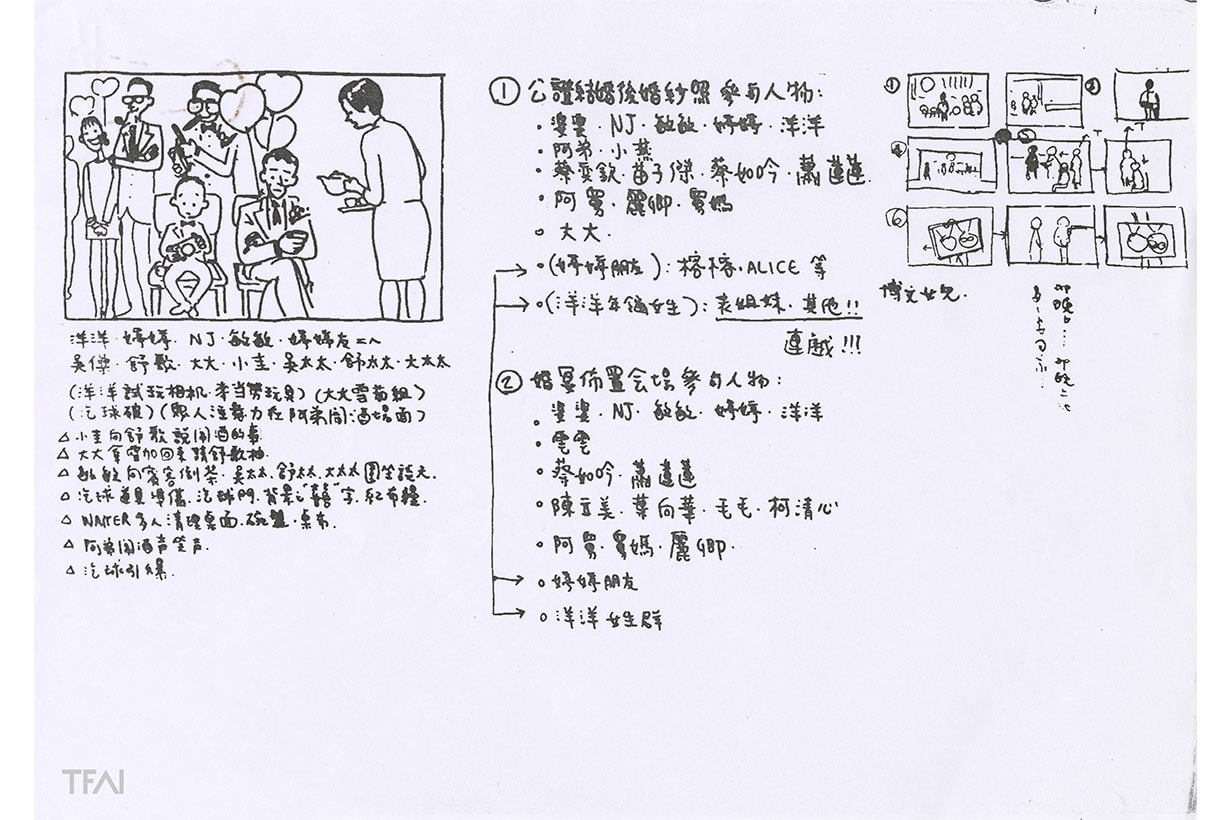 洋洋・婷婷・NJ・敏敏・婷婷友二人
吳傑・舒歌・大大・小圭・吳太太・舒太太・大太太
(洋洋試玩相机・麥当勞玩具)(大大雪茄組)
(汽球破)(眾人注意力在阿弟鬧酒場面)
△ 小圭向舒歌說鬧酒的事
△ 大大拿雪茄回來請舒歌抽
△ 敏敏向賓客倒茶・吳太太・舒太太・大太太圍坐談天.
△ 汽球道具準備・汽球門・背景之"囍"字・紅布幔.
△ WAITER 多人清理桌面・碗盤・桌布.
△ 阿弟鬧酒声笑声.
△ 汽球引線.
① 公證結婚後婚紗照參与人物:
・婆婆・NJ・敏敏・婷婷・洋洋
・阿弟・小燕
・蔡奕欽・苗子傑・蔡如吟・蕭蓮蓮.
・阿舅・麗卿・舅媽
・大大・
・(婷婷朋友):榕榕・ALICE 等
・(洋洋年齡女生):表姐妹・其他!!
連戲!!!
② 婚宴佈置会場參与人物:
・婆婆・NJ・敏敏・婷婷・洋洋
・雲雲
・蔡如吟・蕭蓮蓮
・陳立美・葉向華・毛毛・柯清心
・阿舅・舅媽・麗卿・
・婷婷朋友
・洋洋女生群
①
②
④
⑤
⑥
博文女兒.
TFAI